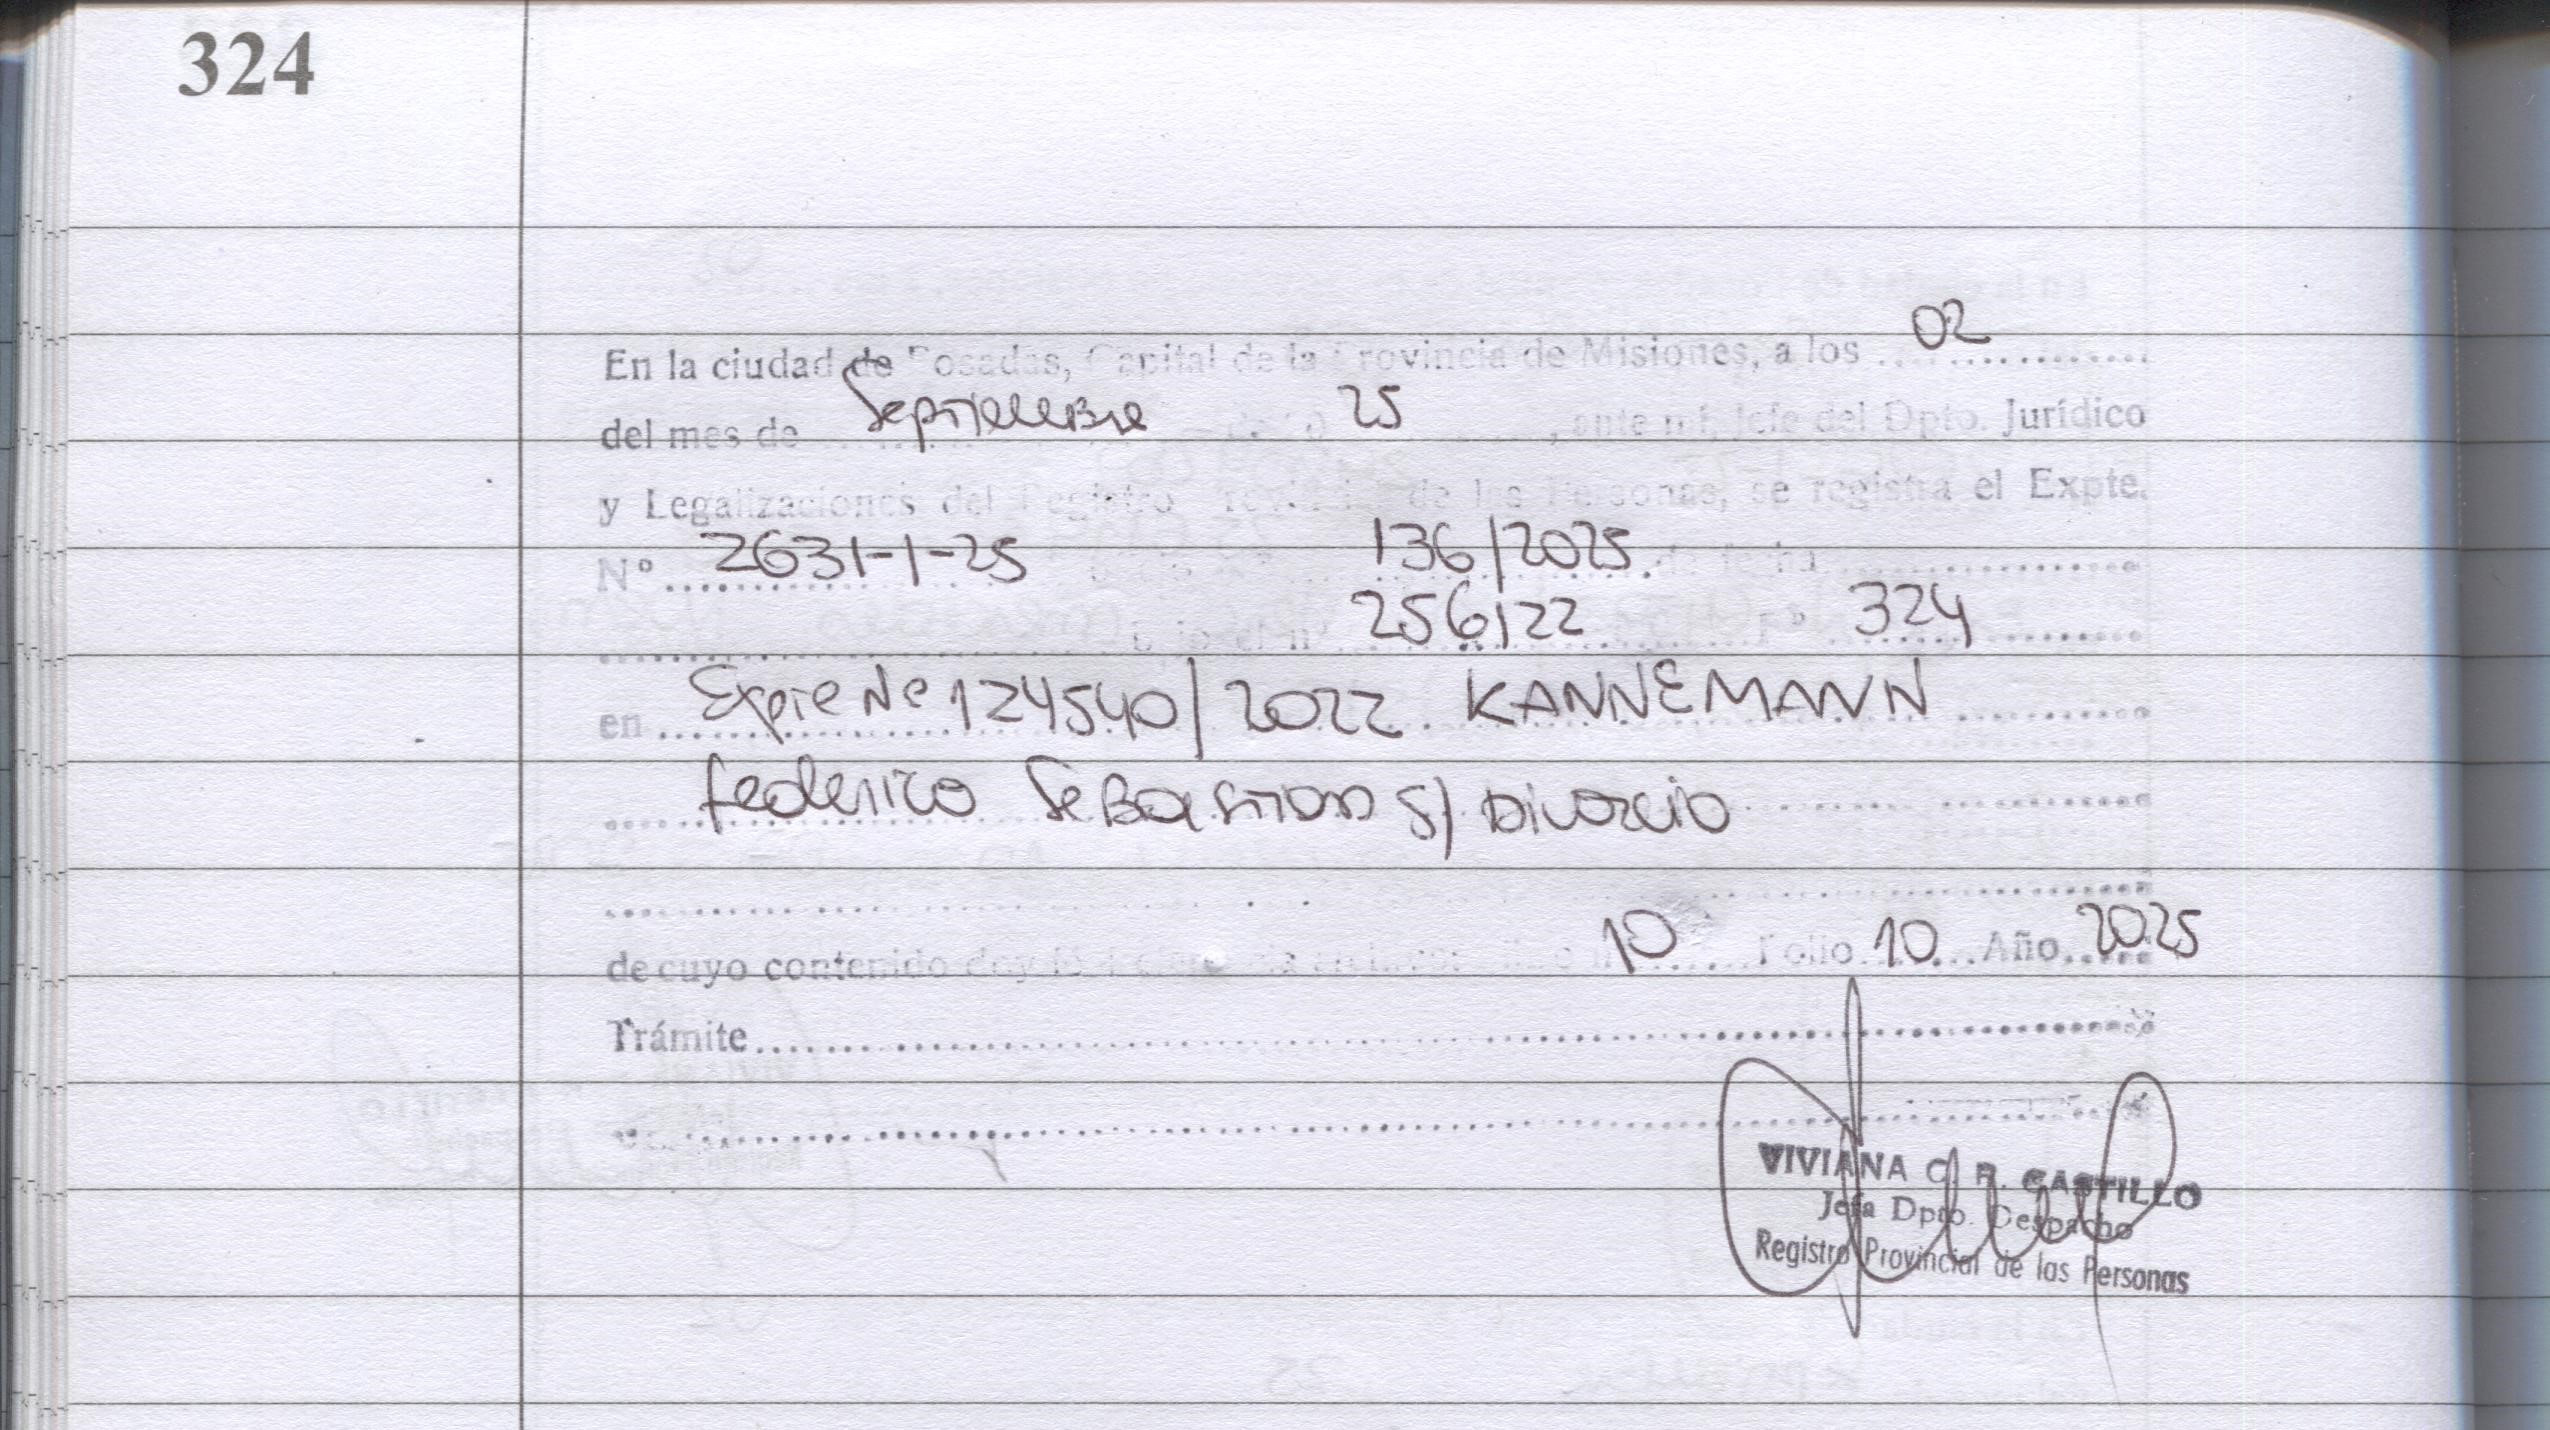 324
En la ciudad de Posadas, Capital de la Provincia de Misiones, a los 02
del mes de Septiembre 25, ante mí, Jefe del Dpto. Jurídico
y Legalizaciones del Registro Provincial de las Personas, se registra el Expte.
Nº 2631-1-25 136/2025 de fecha
bajo el nº 256/22 Fº 324
en Expte Nº 124540/2022 KANNEMANN
Federico Sebastian S/ Divorcio
de cuyo contenido doy fe 10 Folio 10 Año 2025
Trámite
VIVIANA C. R. CASTILLO
Jefa Dpto. Despacho
Registro Provincial de las Personas